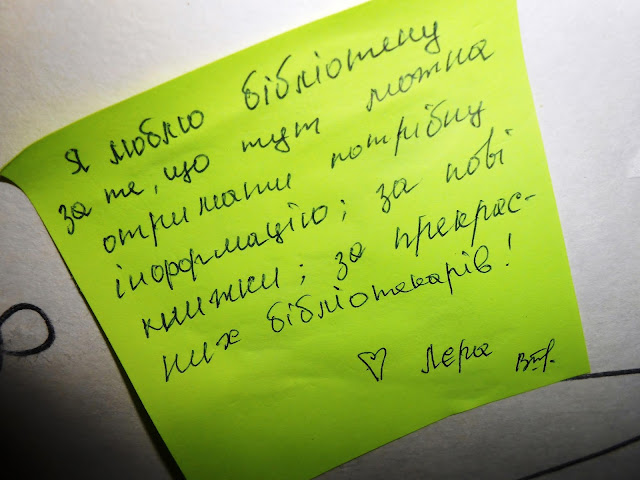 Я люблю бібліотеку
за те, що тут можна
отримати потрібну
інформацію; за нові
книжки; за прекрас-
них бібліотекарів!
♡ Лера